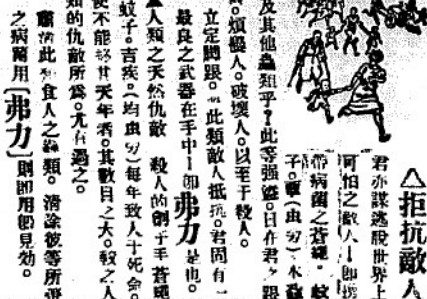 △拒抗敵人
君亦謀逃脫世界上
可怕之敵人—卽
帶病菌之蒼蠅。蚊
子。
及其他蟲類乎?此等强盜。日在君之跟
。煩惱人。破壞人。以至于殺人。
立定脚跟。與此類敵人抵抗。君固有一
最良之武器在手中—卽弗力是也。
人類之天然仇敵 殺人的劊子手蒼蠅
蚊子。吉疾。(均虫旁)每年致人十死命。
使不能終其天年者。其數目之大。較之人
類的仇敵所爲。尤有過之。
此種食人之蟲類。清除彼等所
之病菌用〔弗力〕則卽用卽見効。